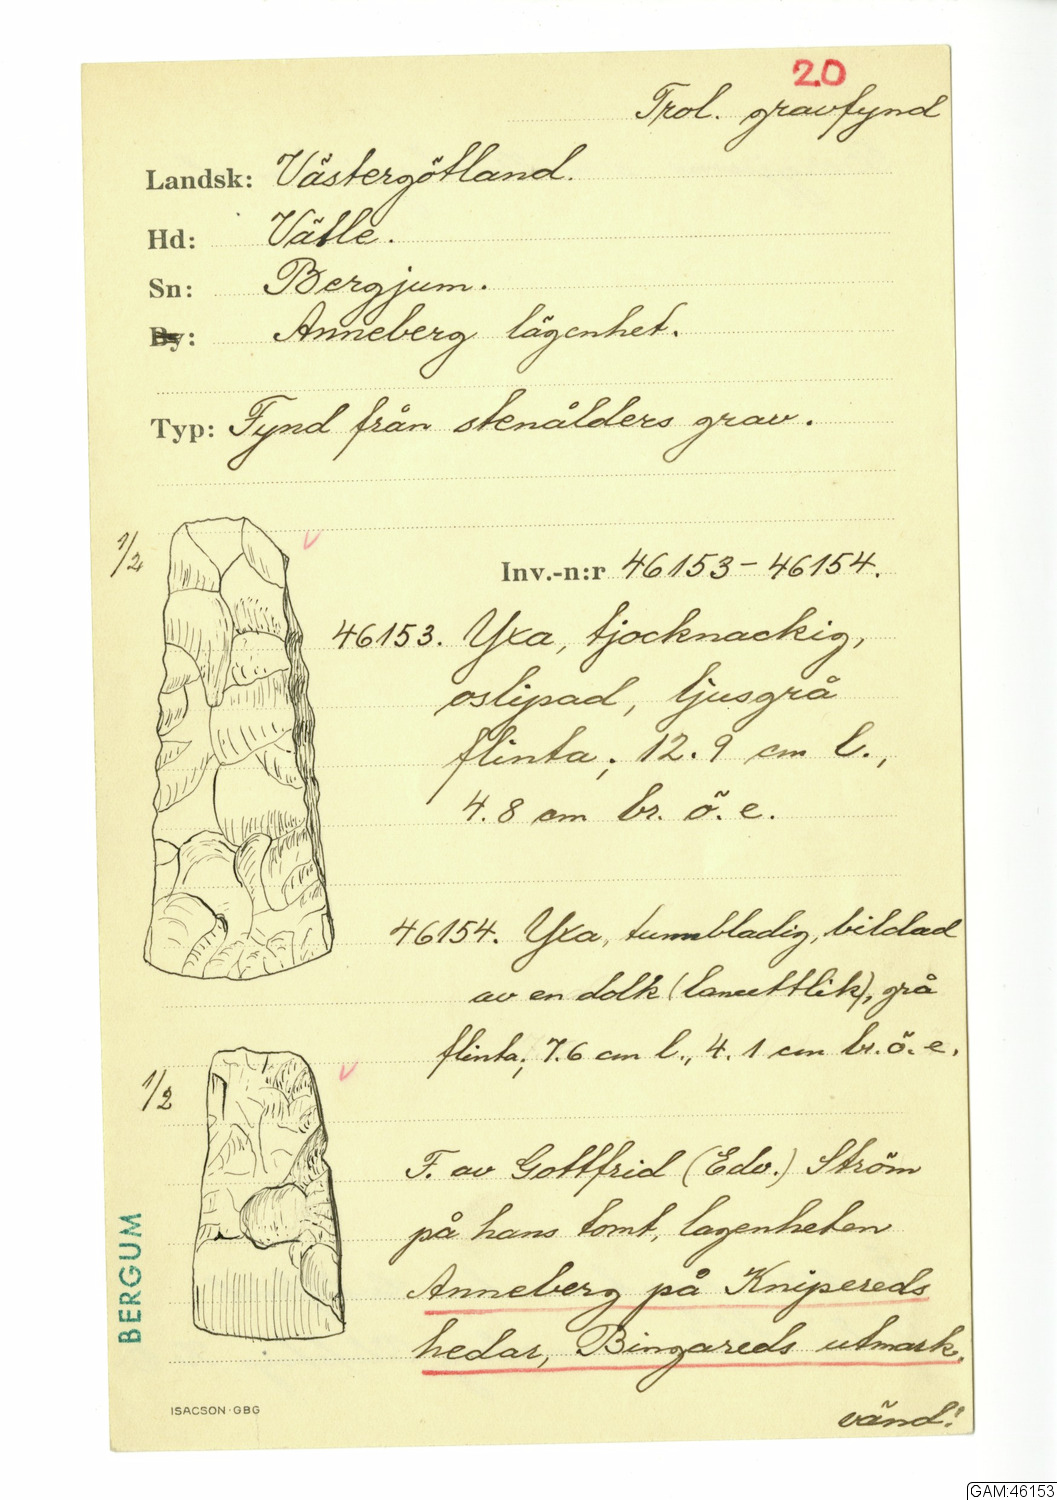 20
Trol. gravfynd
Landsk: Västergötland.
Hd: Vätle.
Sn: Bergjum.
By: Anneberg lägenhet.
Typ: Fynd från stenålders grav.
1/2
Inv.-n:r 46153-46154.
46153. Yxa, tjocknackig,
oslipad, ljusgrå
flinta; 12.9 cm l.,
4.8 cm br. ö. e.
46154. Yxa, tunnbladig, bildad
av en dolk (lancettlik), grå
flinta; 7.6 cm l., 4.1 cm br. ö. e.
1/2
F. av Gottfrid (Edv.) Ström
på hans tomt, lägenheten
Anneberg på Knipereds
hedar, Bingareds utmark.
vänd!
BERGUM
ISACSON·GBG
GAM:46153